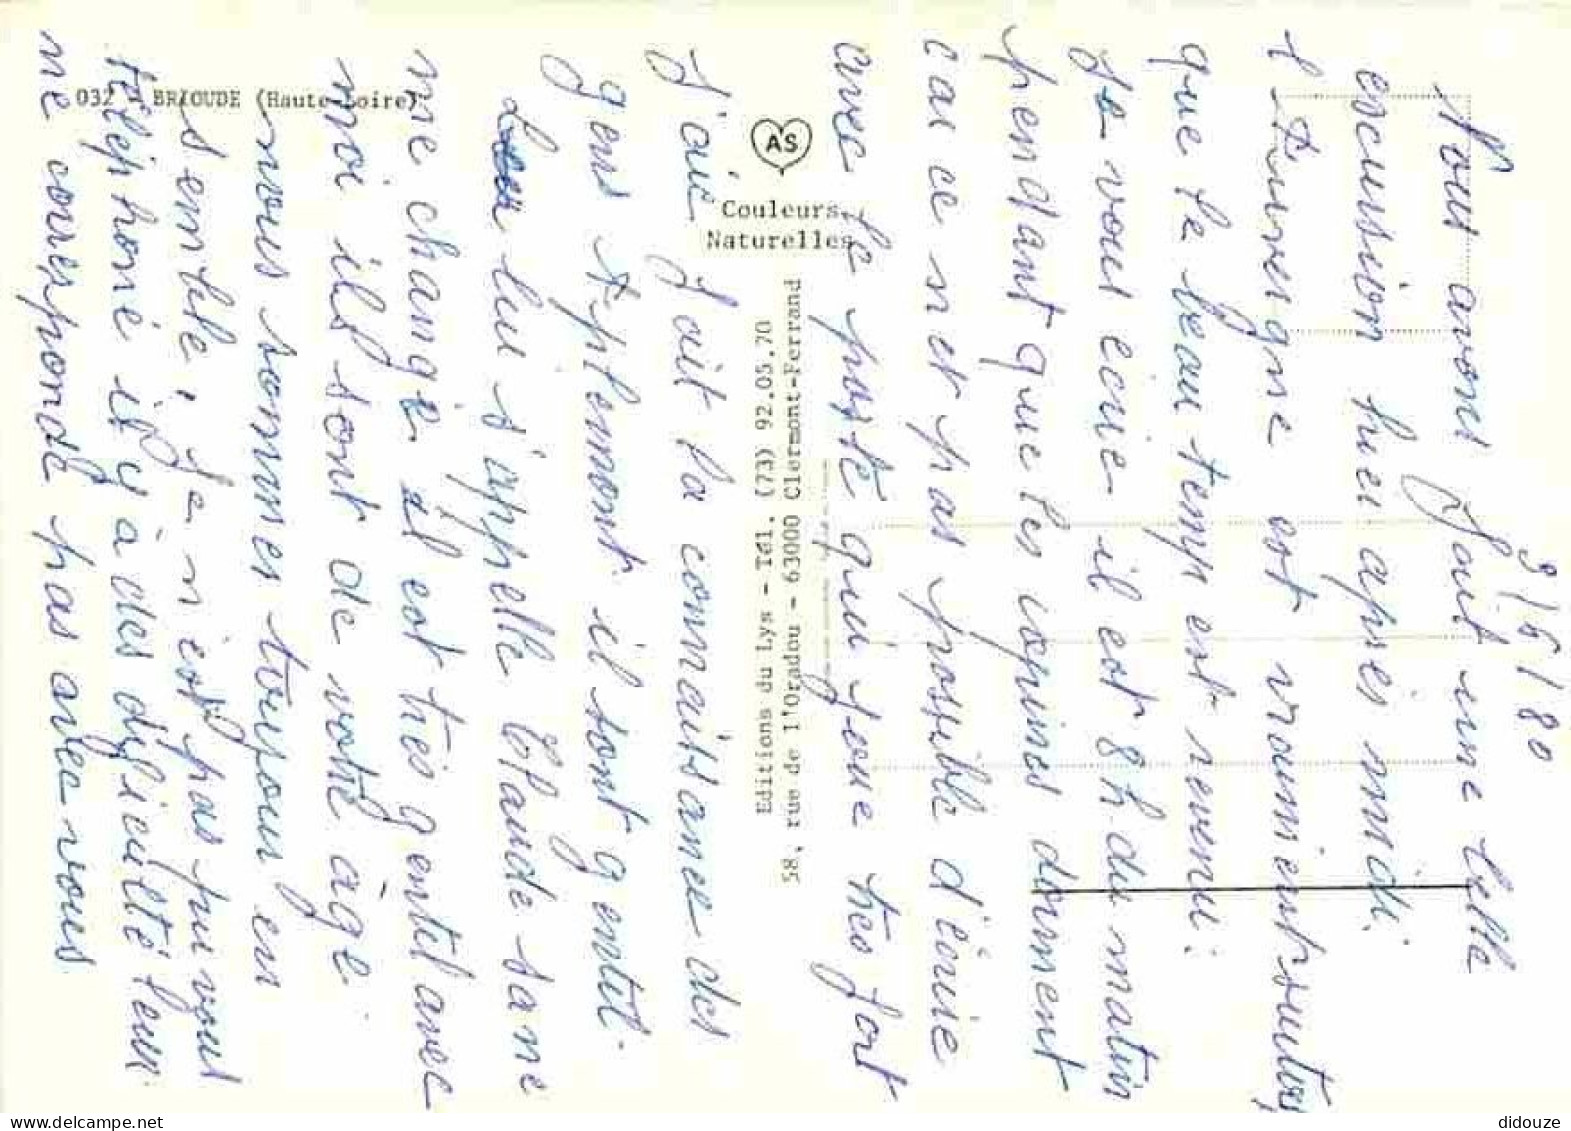 3/6/80
Nous avons fait une belle
excursion hier apres midi.
l'Auvergne est vraiment surtout
que le beau temps est revenu.
Je vous ecrie il est 8h du matin
pendant que les copines dorment
car ce n'est pas possible d'écrire
avec le poste qui joue tres fort
J'ais fait la connaissance des
gens Aplemont il sont gentil.
lui s'appelle Claude sa ne
me change il est tres gentil avec
moi ils sont de votre âge.
nous sommes toujour en
semble, Je n'est pas pu vous
téléphoné il y à des dificulté leur
ne corresponde pas avec vous
032 BRIOUDE (Haute-Loire)
AS
Couleurs
Naturelles
Editions du Lys - Tél. (73) 92.05.70
58, rue de l'Oradou - 63000 Clermont-Ferrand
didouze